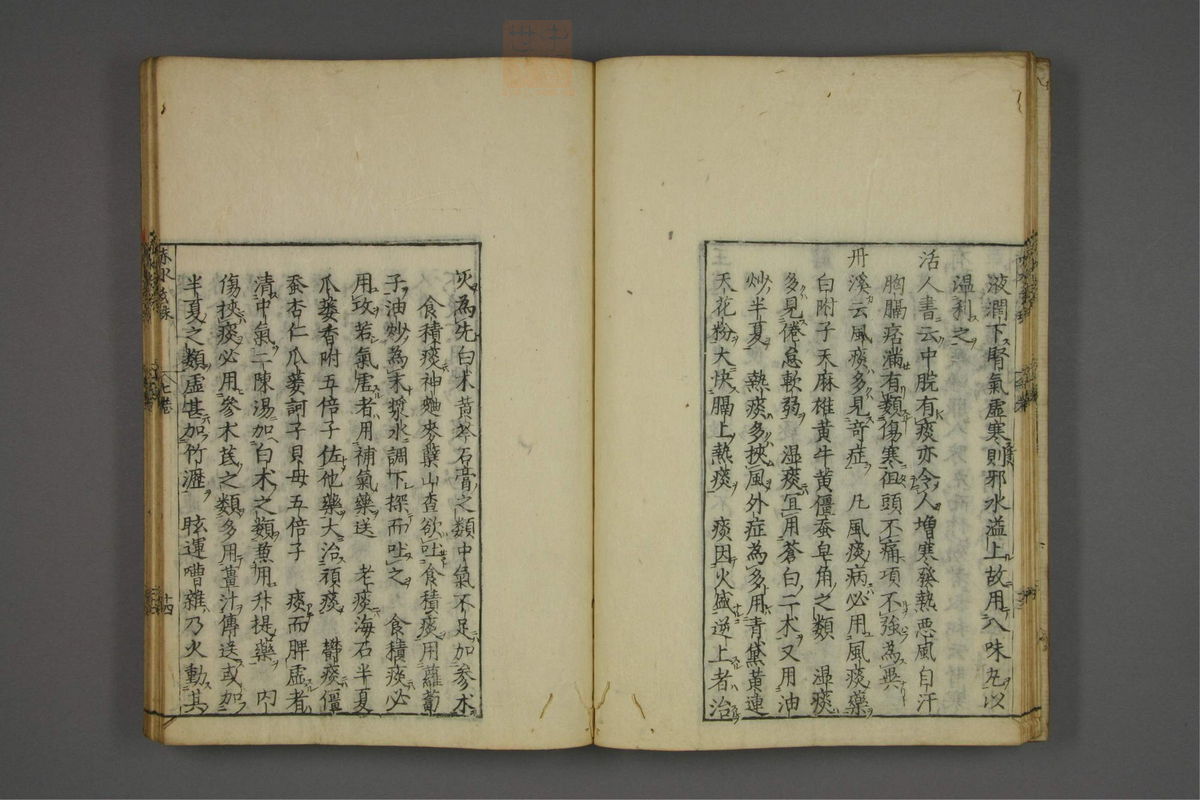 液潤下腎氣虛寒則邪水溢上故用八味丸以
溫利之
活人書云中脘有痰亦令人增寒發熱悪風自汗
胸膈痞滿有類傷寒但頭不痛項不強為異
丹溪云風痰多見奇症 凡風痰病必用風痰藥
白附子天麻雄黄牛黄僵蚕皂角之類 湿痰
多見倦怠軟弱 湿痰宜用蒼白二术又用油
炒半夏 熱痰多挾風外症為多用青黛黃連
天花粉大快膈上熱痰 痰因火盛逆上者治
火為先白术黃芩石膏之類中氣不足加參术
食積痰神麯麥糵山查欲吐食積痰用蘿蔔
子油炒為末漿水調下探而吐之 食積痰必
用攻若氣虛者用補氣藥送 老痰海石半夏
瓜蔞香附五倍子佐他藥大治頑痰 欝痰僵
蚕杏仁瓜蔞訶子貝母五倍子 痰而脾虛者
清中氣二陳湯加白术之類兼用升提藥 内
傷挾痰必用參术芪之類多用薑汁傳送或加
半夏之類虛甚加竹瀝 眩運嘈雜乃火動其
赤水玄珠
七巻
十四